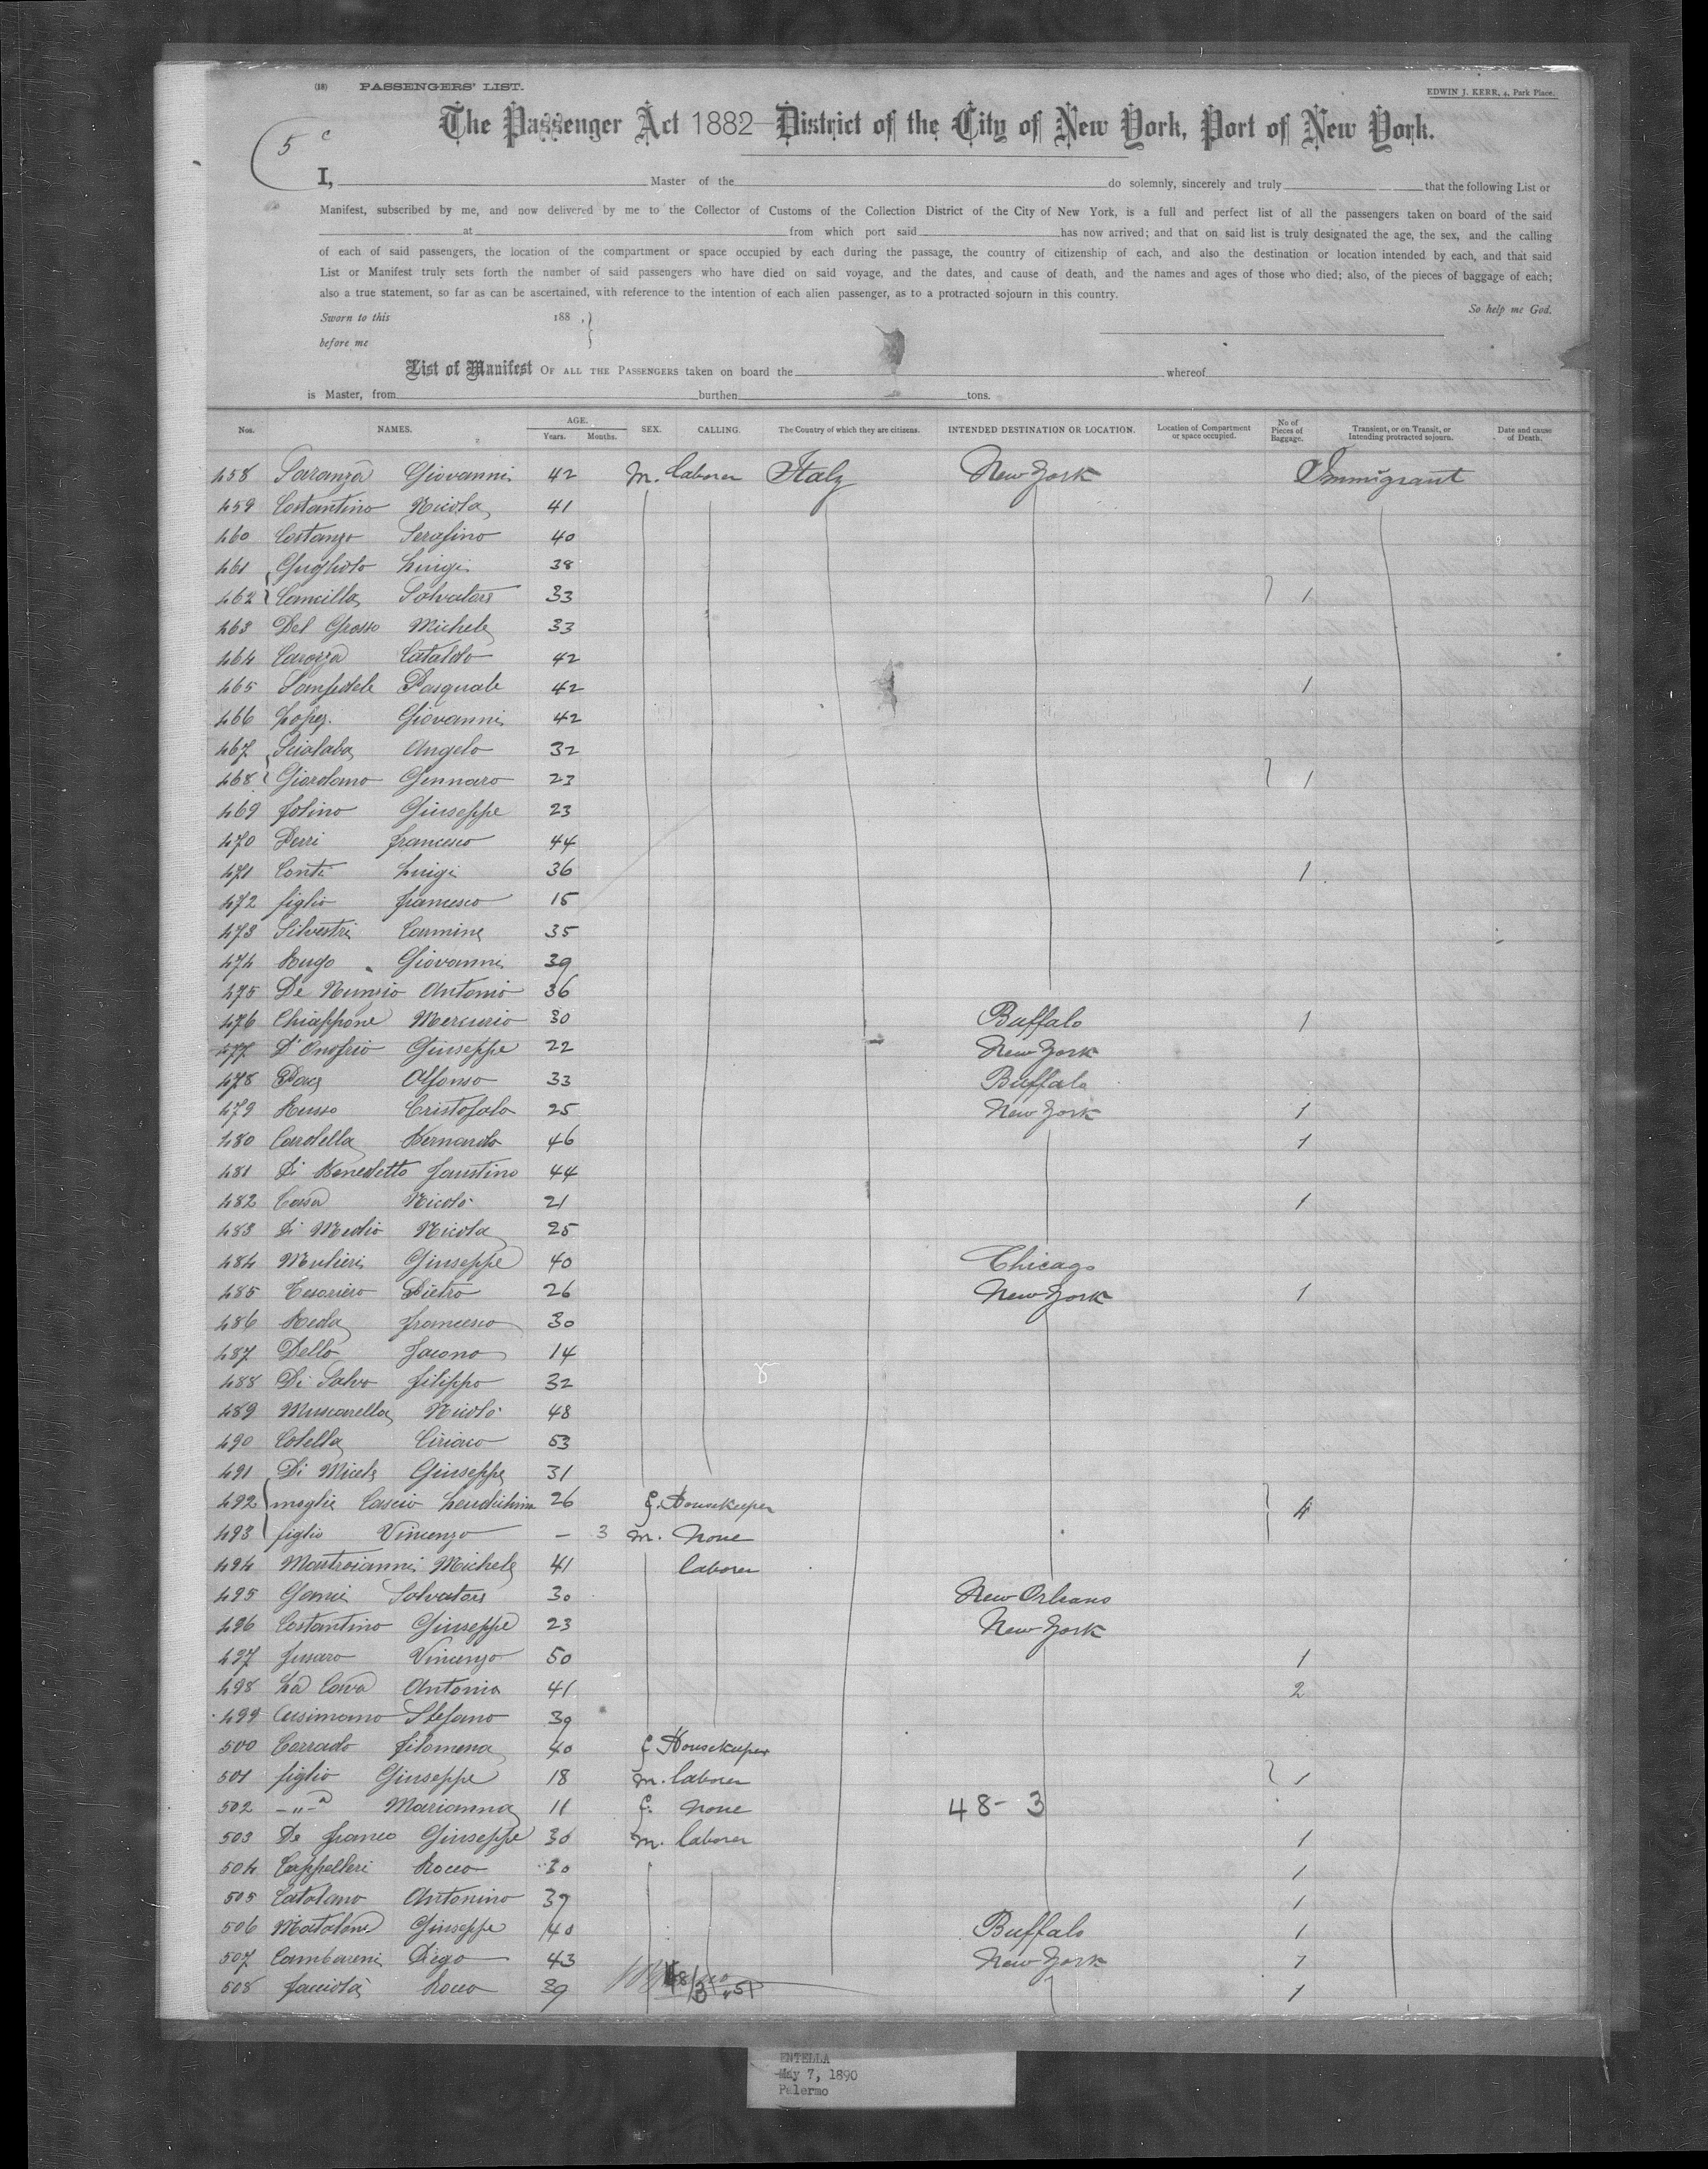 (18) PASSENGERS' LIST.
EDWIN J. KERR, 4, Park Place.
5 c
The Passenger Act 1882 District of the City of New York, Port of New York.
I, Master of the do solemnly, sincerely and truly that the following List or
Manifest, subscribed by me, and now delivered by me to the Collector of Customs of the Collection District of the City of New York, is a full and perfect list of all the passengers taken on board of the said
at from which port said has now arrived; and that on said list is truly designated the age, the sex, and the calling
of each of said passengers, the location of the compartment or space occupied by each during the passage, the country of citizenship of each, and also the destination or location intended by each, and that said
List or Manifest truly sets forth the number of said passengers who have died on said voyage, and the dates, and cause of death, and the names and ages of those who died; also, of the pieces of baggage of each;
also a true statement, so far as can be ascertained, with reference to the intention of each alien passenger, as to a protracted sojourn in this country.
So help me God.
Sworn to this 188 ,
before me
List of Manifest OF ALL THE PASSENGERS taken on board the whereof
is Master, from burthen tons.
Nos. NAMES. AGE. Years. Months. SEX. CALLING. The Country of which they are citizens. INTENDED DESTINATION OR LOCATION. Location of Compartment or space occupied. No of Pieces of Baggage. Transient, or on Transit, or Intending protracted sojourn. Date and cause of Death.
458 Giovanni 42 m. laborer Italy New York Immigrant
459 Costantino Nicola 41
460 Costanzo Serafino 40
461 Luigi 38
462 Cancilla Salvatore 33 1
463 Del Grosso Michele 33
464 Carozza Cataldo 42
465 Sanfedele Pasquale 42 1
466 Lopez. Giovanni 42
467 Scialaba Angelo 32
468 Giordano Gennaro 23 1
469 Folino Giuseppe 23
470 Perri Francesco 44
471 Conte Luigi 36 1
472 figlio Francesco 15
473 Silvestri Carmine 35
474 Giovanni 39
475 De Nunzio Antonio 36
476 Chiappone Mercurio 30 Buffalo 1
477 D'Onofrio Giuseppe 22 New York
478 Pace Alfonso 33 Buffalo
479 Russo Cristofalo 25 New York 1
480 Cardella Bernardo 46 1
481 Di Benedetto Faustino 44
482 Nicolò 21 1
483 Di Medio Nicola 25
484 Mulieri Giuseppe 40 Chicago
485 Tesoriero Pietro 26 New York 1
486 Reda Francesco 30
487 Dello Jacono 14
488 Di Salvo Filippo 32
489 Muscarella Nicolò 48
490 Cotella Ciriaco 53
491 Di Miceli Giuseppe 31
492 moglie Cascio 26 f. Housekeeper 4
493 figlio Vincenzo – 3 m. None
494 Mastroianni Michele 41 laborer
495 Salvatore 30 New Orleans
496 Costantino Giuseppe 23 New York
497 Fusaro Vincenzo 50 1
498 La Cava Antonio 41 2
499 Cusimano Stefano 39
500 Corrado Filomena 40 f Housekeeper
501 figlio Giuseppe 18 m. laborer 1
502 –„–a Marianna 11 f. none 48- 3
503 De Franco Giuseppe 30 m. laborer 1
504 Cappelleri Rocco 30 1
505 Catalano Antonino 39 1
506 Giuseppe 40 Buffalo 1
507 Cambareri Diego 43 New York 1
508 Facciolà Rocco 39 1
ENTELLA
May 7, 1890
Palermo